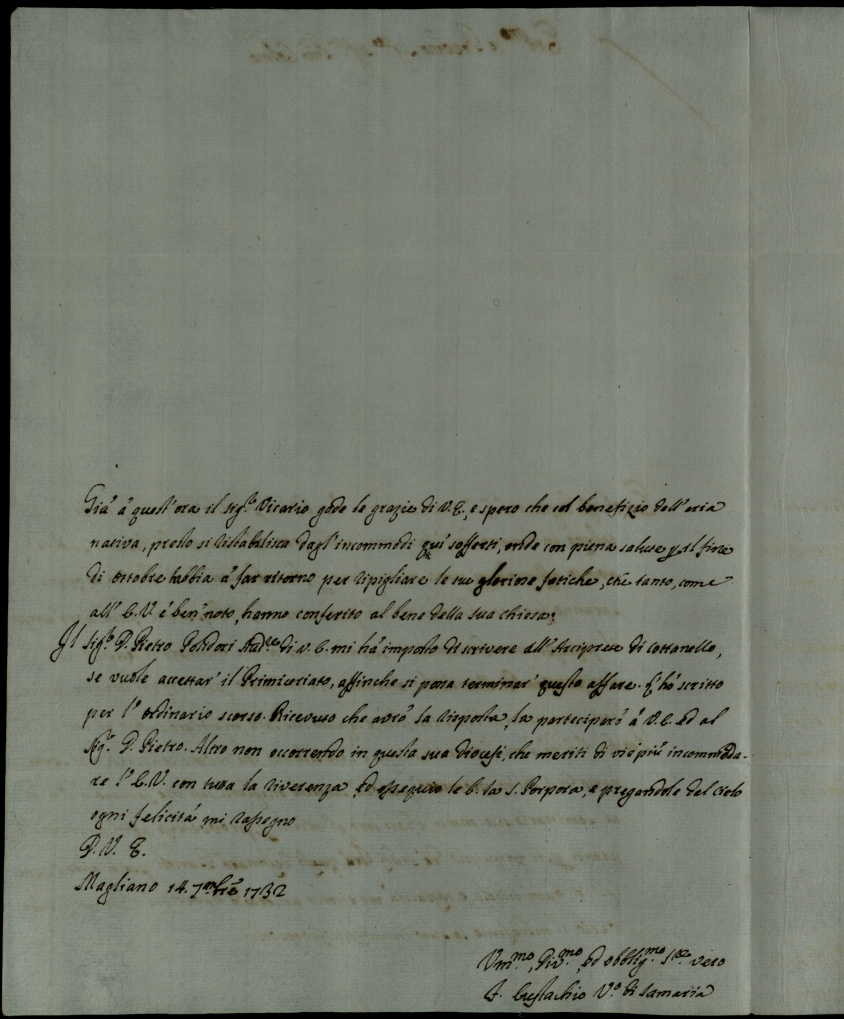 Già à quest'ora il Sig.r Vicario gode le grazie di V.E., e spero che col benefizio dell'aria
nativa, presto si ristabilisca dagl'incommodi quì sofferti, onde con piena salute p il fine
di ottobre habbia à far ritorno per ripigliare le sue gloriose fatiche, che tanto, come
all'E.V. è ben noto, hanno conferito al bene della sua chiesa;
Il Sig.r D. Pietro Polidori Aud.re di V.E. mi hà imposto di scrivere all'Arciprete di Cottanello,
se vuole accettar' il Primiceriato, affinche si possa terminar' questo affare. E hò scritto
per l'ordinario scorso. Ricevuto che avrò la risposta, la parteciperò à V.E. ed al
Sig.r D. Pietro. Altro non occorrendo in questa sua Diocesi, che meriti di vie più incommoda-
re l'E.V. con tutta la riverenza, ed ossequio le b. la S. Porpora, e pregandole dal cielo
ogni felicità mi rassegno
D. V. E.
Magliano 14. 7mbre 1732
Um.mo, Div.mo, ed obblig.mo S.re vero
F. Eustachio V.o di Samaria